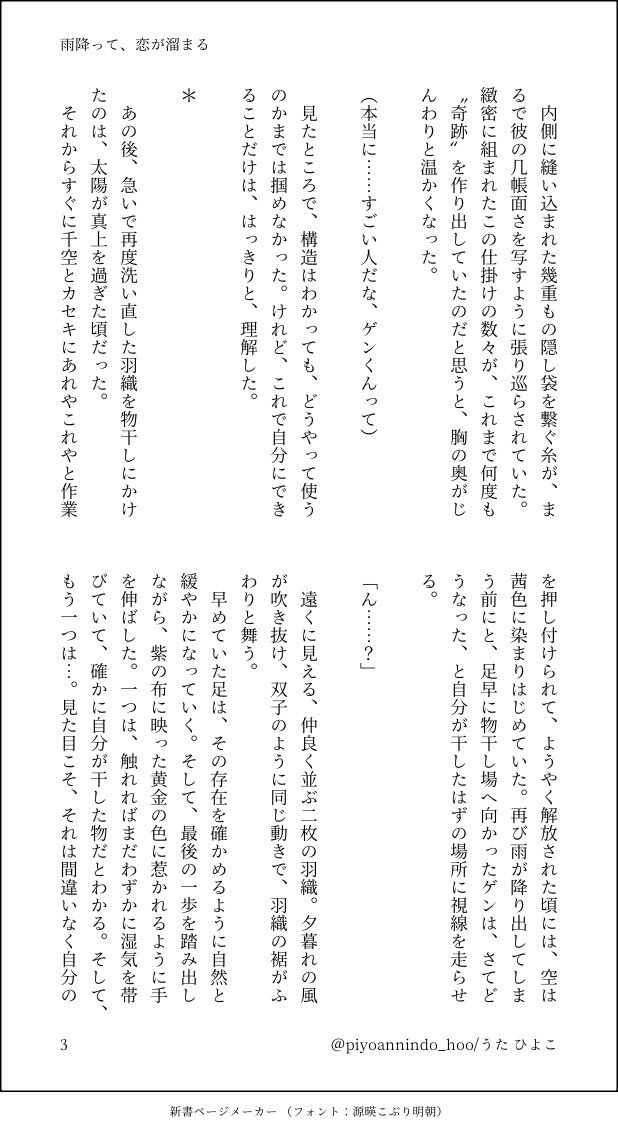 雨降って、恋が溜まる
　内側に縫い込まれた幾重もの隠し袋を繋ぐ糸が、ま
るで彼の几帳面さを写すように張り巡らされていた。
緻密に組まれたこの仕掛けの数々が、これまで何度も
〝奇跡〟を作り出していたのだと思うと、胸の奥がじ
んわりと温かくなった。
（本当に……すごい人だな、ゲンくんって）
　見たところで、構造はわかっても、どうやって使う
のかまでは掴めなかった。けれど、これで自分にでき
ることだけは、はっきりと、理解した。
＊
　あの後、急いで再度洗い直した羽織を物干しにかけ
たのは、太陽が真上を過ぎた頃だった。
　それからすぐに千空とカセキにあれやこれやと作業
を押し付けられて、ようやく解放された頃には、空は
茜色に染まりはじめていた。再び雨が降り出してしま
う前にと、足早に物干し場へ向かったゲンは、さてど
うなった、と自分が干したはずの場所に視線を走らせ
る。
「ん……？」
　遠くに見える、仲良く並ぶ二枚の羽織。夕暮れの風
が吹き抜け、双子のように同じ動きで、羽織の裾がふ
わりと舞う。
　早めていた足は、その存在を確かめるように自然と
緩やかになっていく。そして、最後の一歩を踏み出し
ながら、紫の布に映った黄金の色に惹かれるように手
を伸ばした。一つは、触れればまだわずかに湿気を帯
びていて、確かに自分が干した物だとわかる。そして、
もう一つは…。見た目こそ、それは間違いなく自分の
3
@piyoannindo_hoo/うた ひよこ
新書ページメーカー（フォント：源暎こぶり明朝）